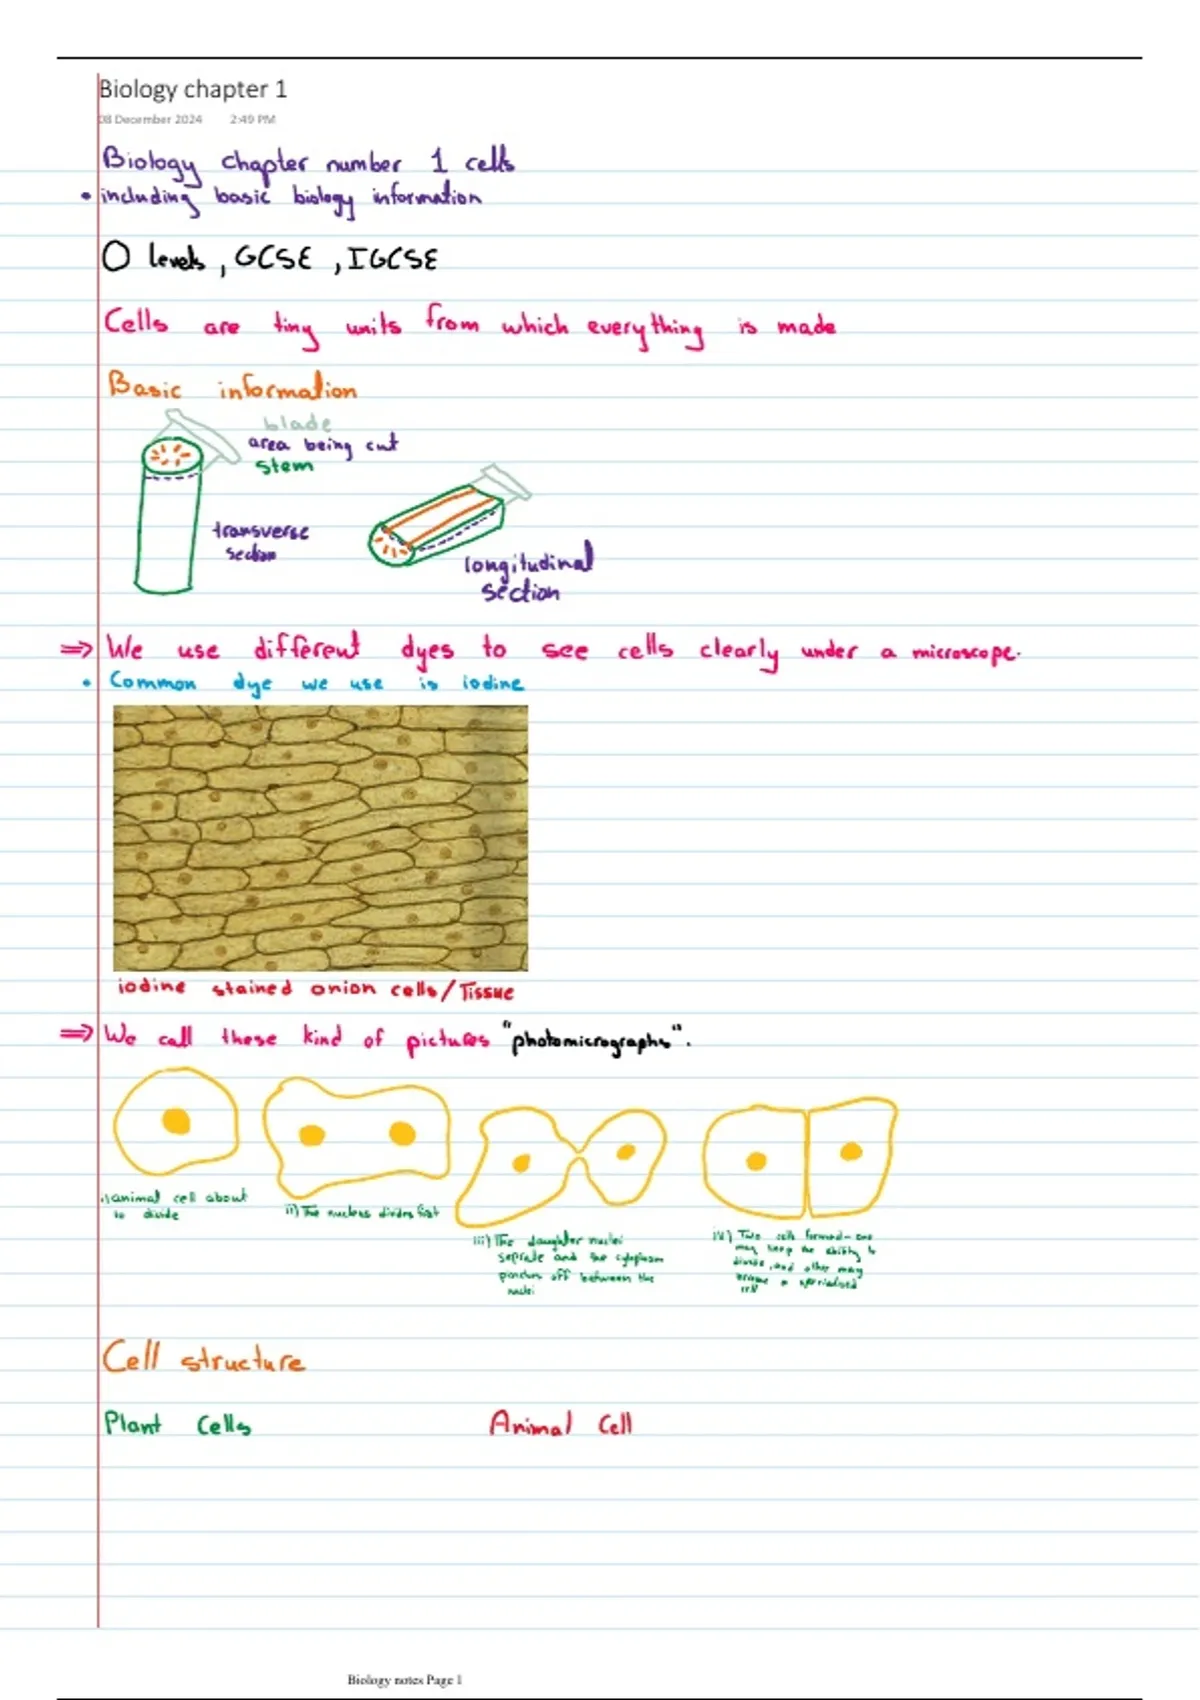 Biology chapter 1
08 December 2024 2:49 PM
Biology chapter number 1 cells
• including basic biology information
O levels, GCSE, IGCSE
Cells are tiny units from which everything is made
Basic information
blade
area being cut
stem
transverse
section
longitudinal
section
⇒ We use different dyes to see cells clearly under a microscope.
• Common dye we use is iodine
iodine stained onion cells/Tissue
⇒ We call these kind of pictures "photomicrographs".
i) animal cell about
to divide
ii) The nucleus divides first
iii) The daughter nuclei
seprate and the cytoplasm
pinches off between the
nuclei
iv) Two cells formed - one
may keep the ability to
divide, and other may
become a specialised
cell
Cell structure
Plant Cells
Animal Cell
Biology notes Page 1